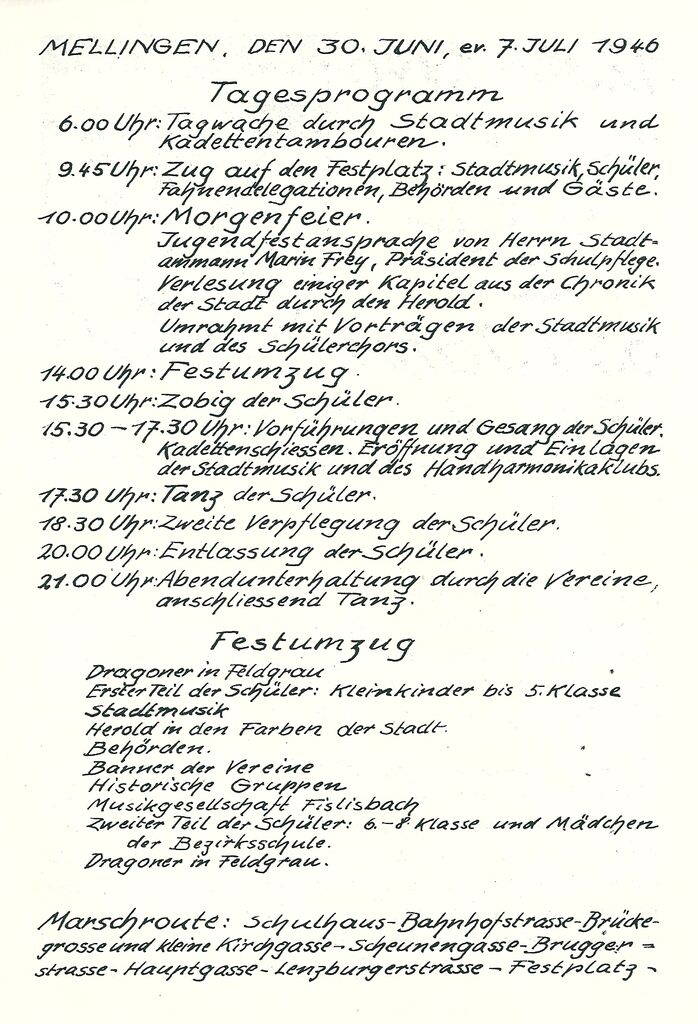 MELLINGEN, DEN 30. JUNI, ev. 7. JULI 1946
Tagesprogramm
6.00 Uhr: Tagwache durch Stadtmusik und
Kadettentambouren.
9.45 Uhr: Zug auf den Festplatz: Stadtmusik, Schüler,
Fahnendelegationen, Behörden und Gäste.
10.00 Uhr: Morgenfeier.
Jugendfestansprache von Herrn Stadt=
ammann Marin Frey, Präsident der Schulpflege.
Verlesung einiger Kapitel aus der Chronik
der Stadt durch den Herold.
Umrahmt mit Vorträgen der Stadtmusik
und des Schülerchors.
14.00 Uhr: Festumzug.
15.30 Uhr: Zobig der Schüler.
15.30 – 17.30 Uhr: Vorführungen und Gesang der Schüler.
Kadettenschiessen. Eröffnung und Einlagen
der Stadtmusik und des Handharmonikaklubs.
17.30 Uhr: Tanz der Schüler.
18.30 Uhr: Zweite Verpflegung der Schüler.
20.00 Uhr: Entlassung der Schüler.
21.00 Uhr: Abendunterhaltung durch die Vereine,
anschliessend Tanz.
Festumzug
Dragoner in Feldgrau
Erster Teil der Schüler: Kleinkinder bis 5. Klasse
Stadtmusik
Herold in den Farben der Stadt.
Behörden.
Banner der Vereine
Historische Gruppen
Musikgesellschaft Fislisbach
Zweiter Teil der Schüler: 6.–8. Klasse und Mädchen
der Bezirksschule.
Dragoner in Feldgrau.
Marschroute: Schulhaus-Bahnhofstrasse-Brücke-
grosse und kleine Kirchgasse-Scheunengasse-Brugger=
strasse-Hauptgasse-Lenzburgerstrasse-Festplatz-